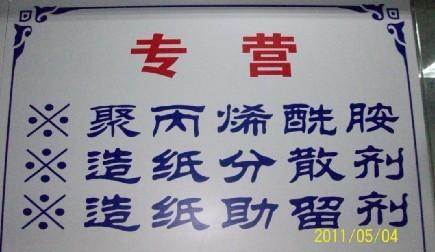 专营
※聚丙烯酰胺
※造纸分散剂
※造纸助留剂
2011/05/04